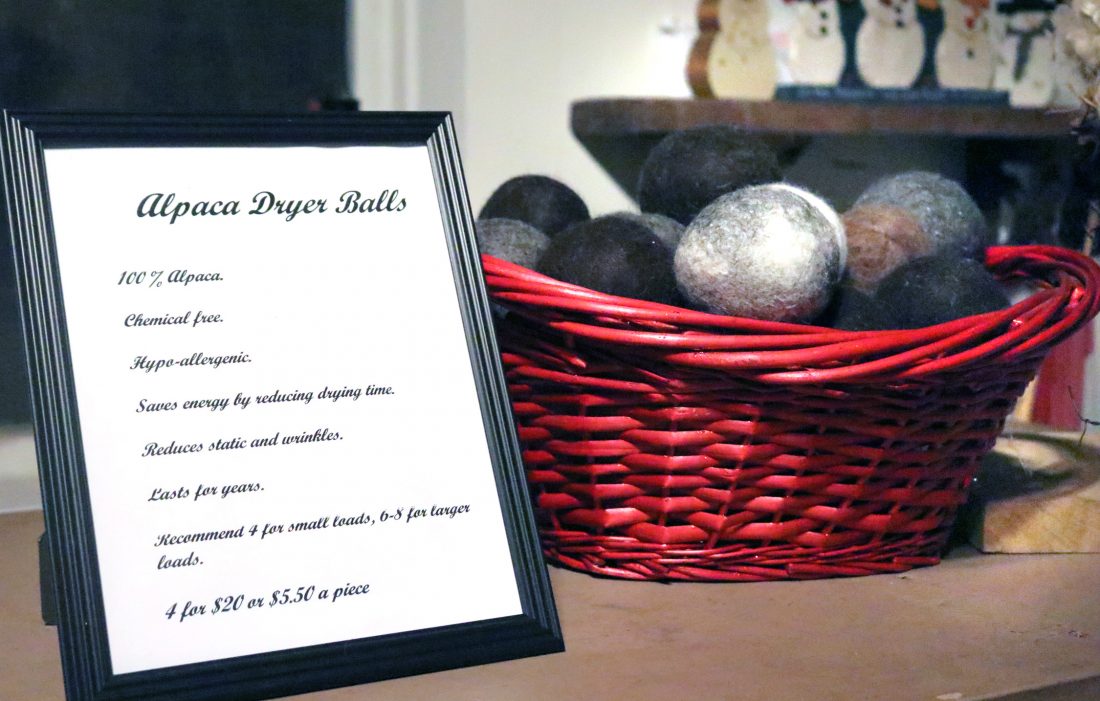 Alpaca Dryer Balls
100% Alpaca.
Chemical free.
Hypo-allergenic.
Saves energy by reducing drying time.
Reduces static and wrinkles.
Lasts for years.
Recommend 4 for small loads, 6-8 for larger
loads.
4 for $20 or $5.50 a piece